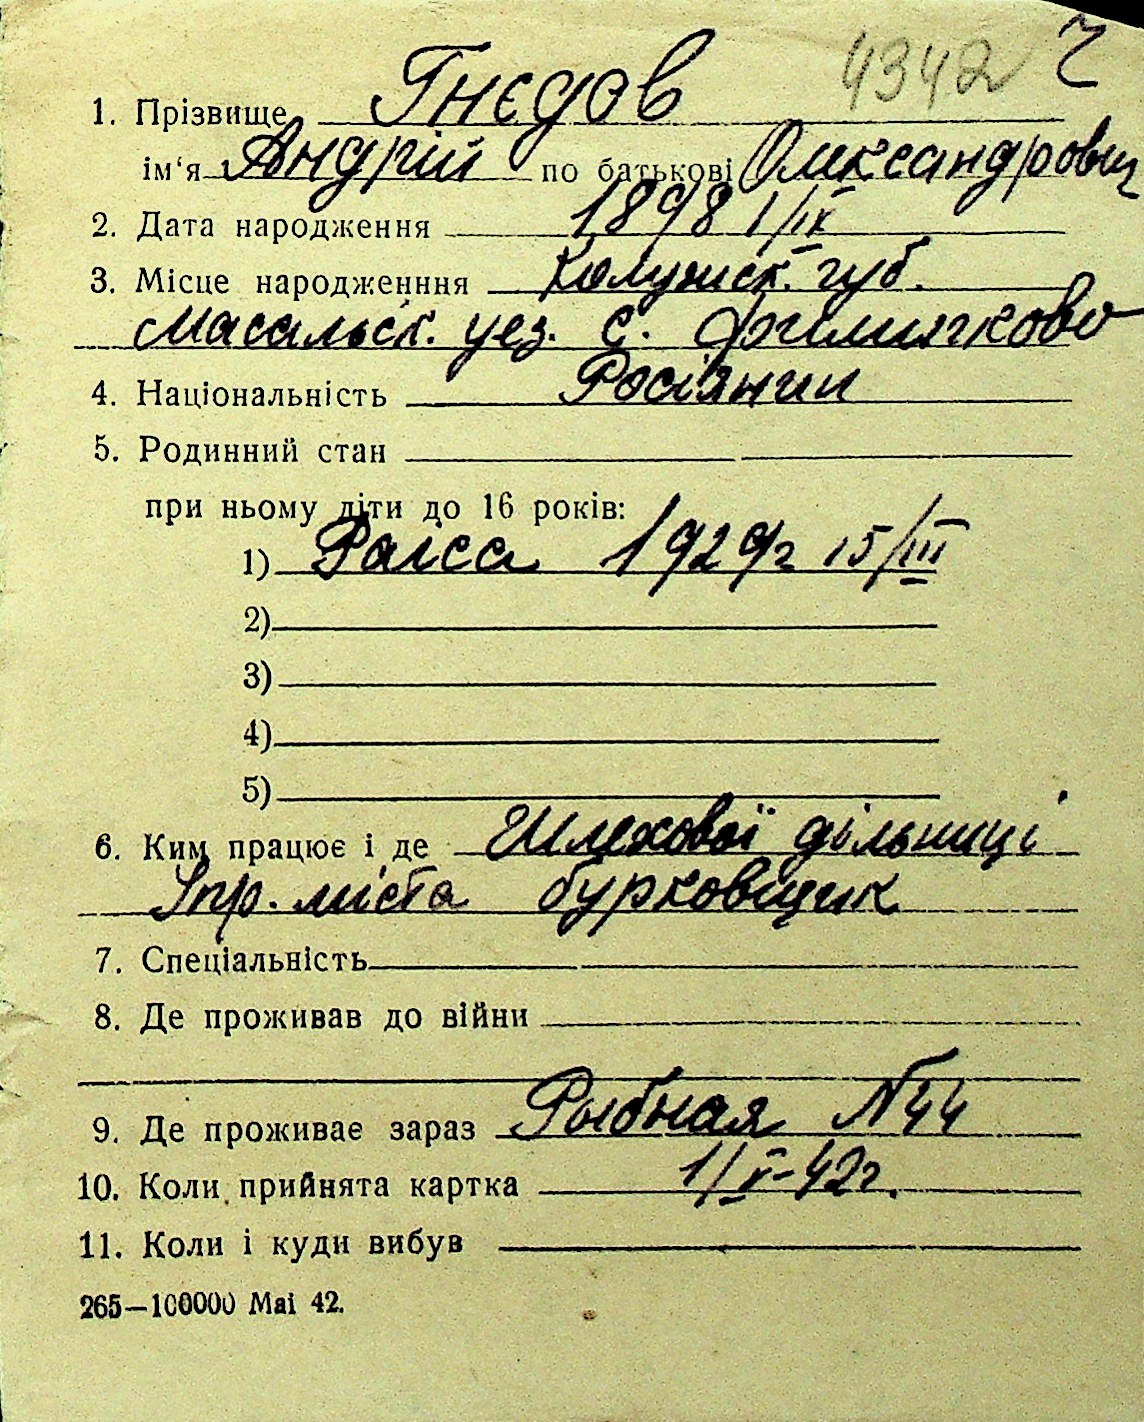 4342 Ч
1. Прізвище Гнєдов
ім‘я Андрій по батькові Олександрович
2. Дата народження 1898 1/IX
3. Місце народженння Калужск. губ.
Масальск. уез. с. Филичково
4. Національність Росіянин
5. Родинний стан
при ньому діти до 16 років:
1) Раїса 1929г 15/III
2)
3)
4)
5)
6. Ким працює і де Шляхової дільниці
Упр. міста бурковщик
7. Спеціальність
8. Де проживав до війни
9. Де проживає зараз Рыбная N44
10. Коли прийнята картка 1/V-42г.
11. Коли і куди вибув
265—100000 Mai 42.